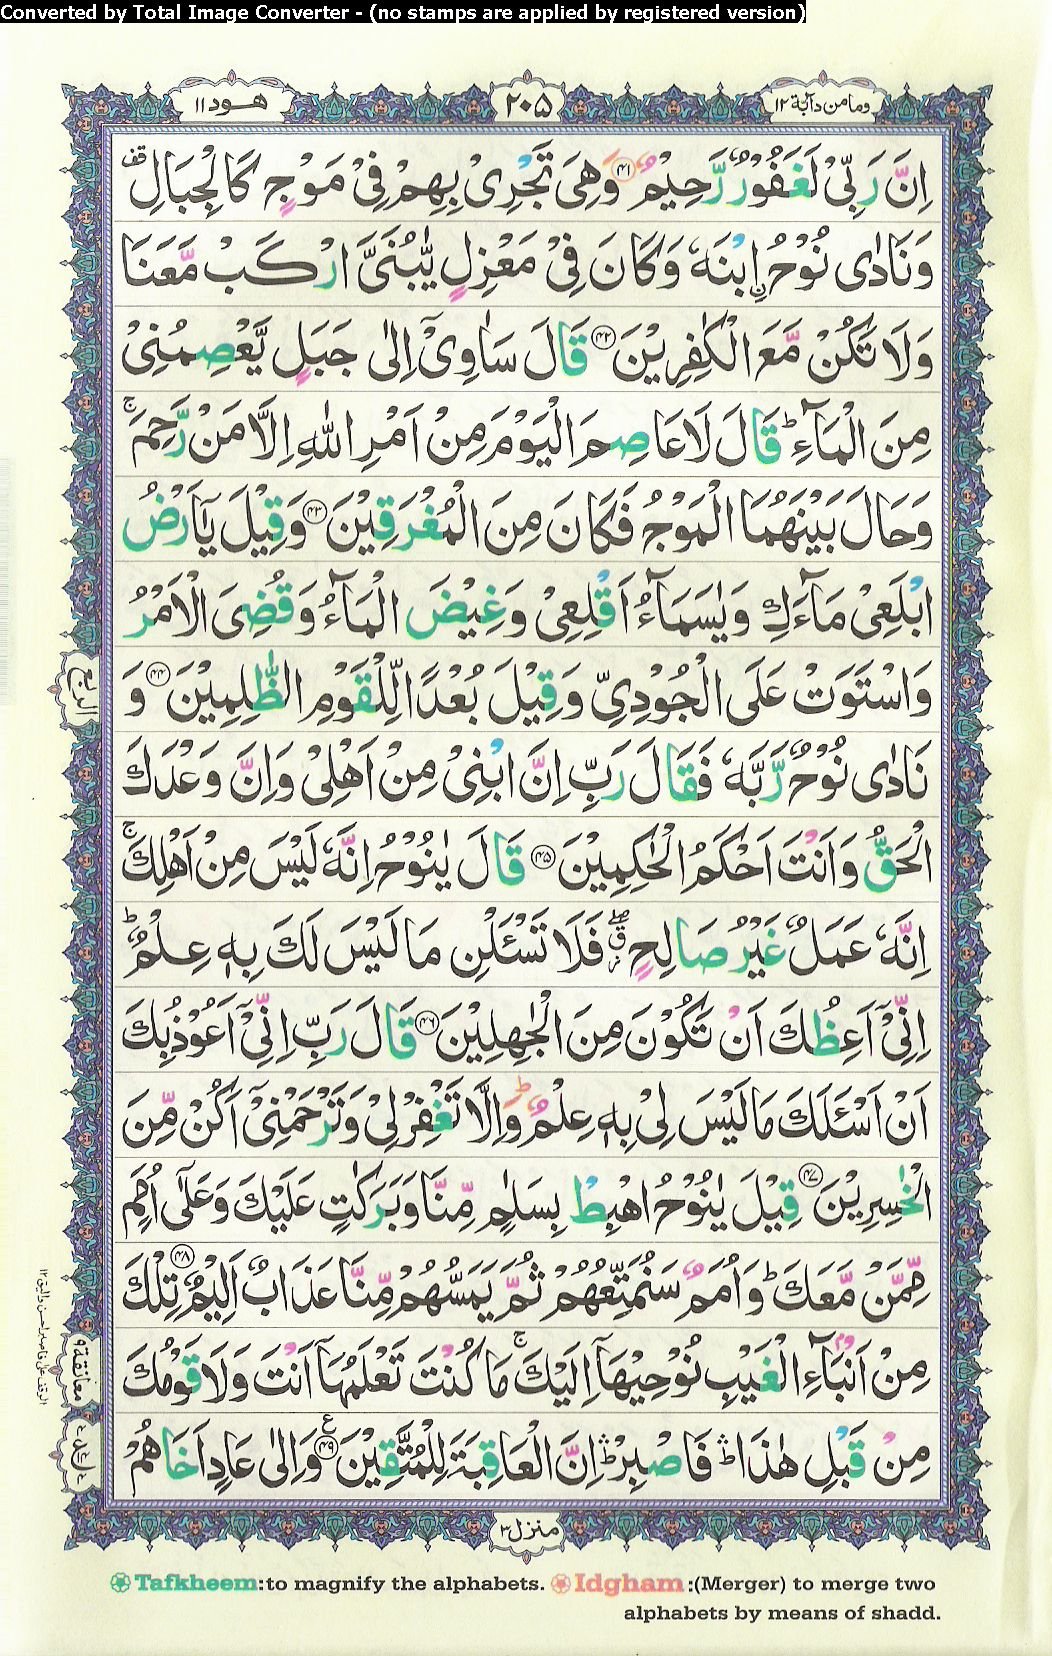 Converted by Total Image Converter - (no stamps are applied by registered version)
وما من دآبة ۱۲
۲۰۵
هود ۱۱
اِنَّ رَبِّىْ لَغَفُوْرٌ رَّحِيْمٌ ﴿۴۱﴾ وَهِىَ تَجْرِىْ بِهِمْ فِىْ مَوْجٍ كَالْجِبَالِ قف
وَنَادٰى نُوْحُ ۨابْنَهٗ وَكَانَ فِىْ مَعْزِلٍ يّٰبُنَىَّ ارْكَبْ مَّعَنَا
وَلَا تَكُنْ مَّعَ الْكٰفِرِيْنَ ﴿۴۲﴾ قَالَ سَاٰوِىْۤ اِلٰى جَبَلٍ يَّعْصِمُنِىْ
مِنَ الْمَآءِ ؕ قَالَ لَا عَاصِمَ الْيَوْمَ مِنْ اَمْرِ اللّٰهِ اِلَّا مَنْ رَّحِمَ ۚ
وَحَالَ بَيْنَهُمَا الْمَوْجُ فَكَانَ مِنَ الْمُغْرَقِيْنَ ﴿۴۳﴾ وَقِيْلَ يٰۤاَرْضُ
ابْلَعِىْ مَآءَكِ وَيٰسَمَآءُ اَقْلِعِىْ وَغِيْضَ الْمَآءُ وَقُضِىَ الْاَمْرُ
وَاسْتَوَتْ عَلَى الْجُوْدِىِّ وَقِيْلَ بُعْدًا لِّلْقَوْمِ الظّٰلِمِيْنَ ﴿۴۴﴾ وَ
نَادٰى نُوْحٌ رَّبَّهٗ فَقَالَ رَبِّ اِنَّ ابْنِىْ مِنْ اَهْلِىْ وَاِنَّ وَعْدَكَ
الْحَقُّ وَاَنْتَ اَحْكَمُ الْحٰكِمِيْنَ ﴿۴۵﴾ قَالَ يٰنُوْحُ اِنَّهٗ لَيْسَ مِنْ اَهْلِكَ ۚ
اِنَّهٗ عَمَلٌ غَيْرُ صَالِحٍ فَلَا تَسْـَٔلْنِ مَا لَيْسَ لَكَ بِهٖ عِلْمٌ ؕ
اِنِّىْۤ اَعِظُكَ اَنْ تَكُوْنَ مِنَ الْجٰهِلِيْنَ ﴿۴۶﴾ قَالَ رَبِّ اِنِّىْۤ اَعُوْذُ بِكَ
اَنْ اَسْـَٔلَكَ مَا لَيْسَ لِىْ بِهٖ عِلْمٌ ؕ وَاِلَّا تَغْفِرْ لِىْ وَتَرْحَمْنِىْۤ اَكُنْ مِّنَ
الْخٰسِرِيْنَ ﴿۴۷﴾ قِيْلَ يٰنُوْحُ اهْبِطْ بِسَلٰمٍ مِّنَّا وَبَرَكٰتٍ عَلَيْكَ وَعَلٰۤى اُمَمٍ
مِّمَّنْ مَّعَكَ ؕ وَاُمَمٌ سَنُمَتِّعُهُمْ ثُمَّ يَمَسُّهُمْ مِّنَّا عَذَابٌ اَلِيْمٌ ﴿۴۸﴾ تِلْكَ
مِنْ اَنْۢبَآءِ الْغَيْبِ نُوْحِيْهَاۤ اِلَيْكَ ۚ مَا كُنْتَ تَعْلَمُهَاۤ اَنْتَ وَلَا قَوْمُكَ
مِنْ قَبْلِ هٰذَا ۛؕ فَاصْبِرْ ۛؕ اِنَّ الْعَاقِبَةَ لِلْمُتَّقِيْنَ ﴿۴۹﴾ ع وَاِلٰى عَادٍ اَخَاهُمْ
الربع
معانقة ۹
منزل ۳
Tafkheem:to magnify the alphabets. Idgham:(Merger) to merge two
alphabets by means of shadd.